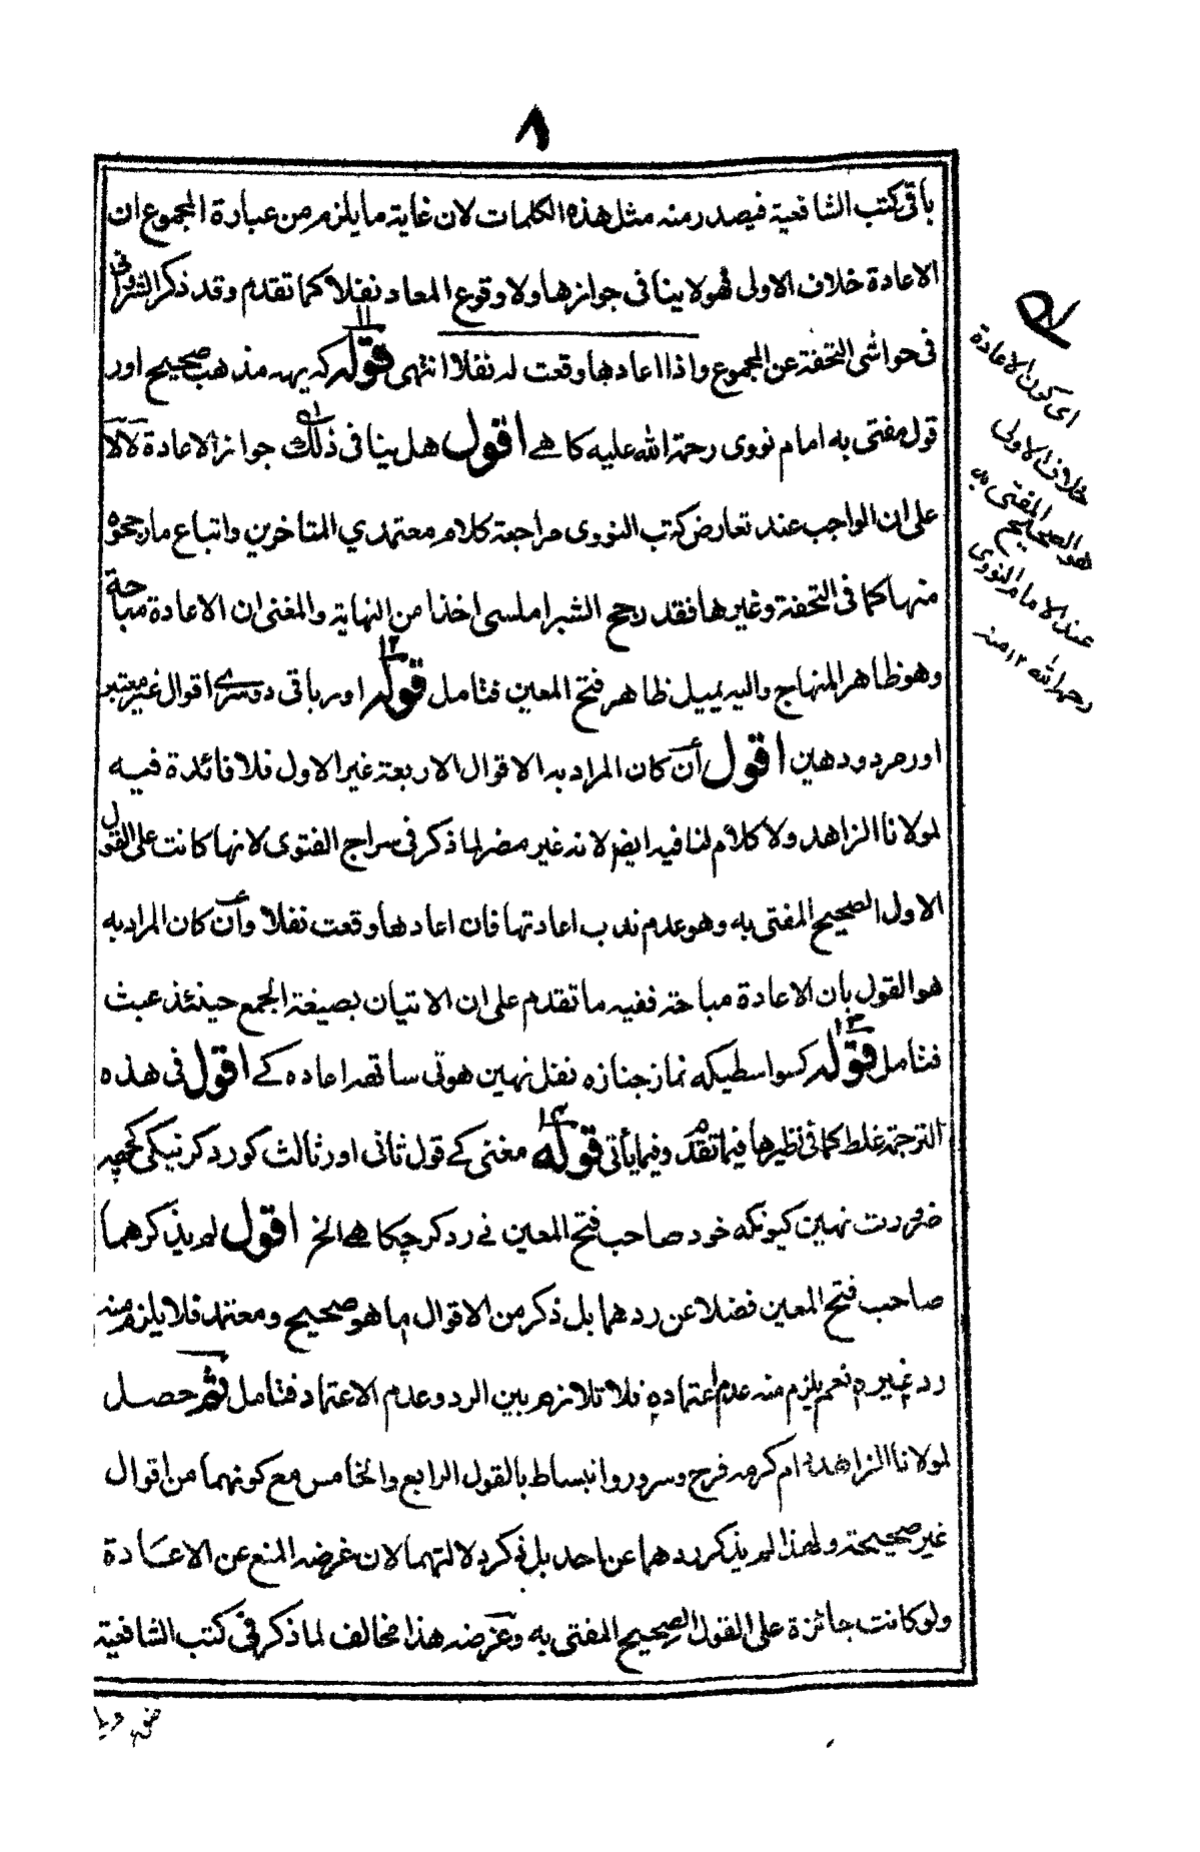 ٨
باقى كتب الشافعية فيصدر منه مثل هذه الكلمات لان غاية ما يلزم من عبارة المجموع ان
الاعادة خلاف الاولى فهو لا ينافى جوازها ولا وقوع المعاد نفلا كما تقدم وقد ذكر الشروانى
فى حواشى التحفة عن المجموع واذا اعادها وقعت له نفلا انتهى قوله ١١ كه يهه مذهب صحيح اور
قول مفتى به امام نووى رحمة الله عليه كا هے اقول هل ينافى ذلك جواز الاعادة لا لا
على ان الواجب عند تعارض كتب النووى مراجعة كلام معتمدي المتاخرين واتباع ما رجحوه
منها كما فى التحفة وغيرها فقد رجح الشبراملسى اخذا من النهاية والمغنى ان الاعادة مباحة
وهو ظاهر المنهاج واليه يميل ظاهر فتح المعين فتامل قوله ١٢ اور باقى دوسرے اقوال غير معتبر
اور مردود هين اقول أن كان المراد به الاقوال الاربعة غير الاول فلا فائدة فيه
لمولانا الزاهد ولا كلام لنا فيه ايضا لانه غير مضر لما ذكر فى سراج الفتوى لانها كانت على القول
الاول الصحيح المفتى به وهو عدم ندب اعادتها فان اعادها وقعت نفلا وأن كان المراد به
هو القول بان الاعادة مباحة ففيه ما تقدم على ان الاتيان بصيغة الجمع حينئذ عبث
فتامل قوله ١٣ كسواسطيكه نماز جنازه نفل نهين هوتى ساتهه اعاده كے اقول فى هذه
الترجمة غلط كما فى نظيرها فيما تقدم وفيما يأتى قوله ١٤ مغنى كے قول ثانى اور ثالث كو رد كرنيكى كچهه
ضرورت نهين كيونكه خود صاحب فتح المعين نے رد كرچكا هے الخ اقول لم يذكرهما
صاحب فتح المعين فضلا عن ردهما بل ذكر من الاقوال ما هو صحيح ومعتمد فلا يلزم منه
رد غيره نعم يلزم منه عدم اعتماده فلا تلازم بين الرد وعدم الاعتماد فتامل ثم حصل
لمولانا الزاهد ام كرمه فرح وسرور وانبساط بالقول الرابع والخامس مع كونهما من اقوال
غير صحيحة ولهذا لم يذكر ردهما عن احد بل فكر دلالتهما لان غرضه المنع عن الاعادة
ولو كانت جائزة على القول الصحيح المفتى به وغرضه هذا مخالف لما ذكر فى كتب الشافعية
اى كون الاعادة
خلاف الاولى
هو الصحيح المفتى به
عند الامام النووى
رحمه الله ١٢ منه